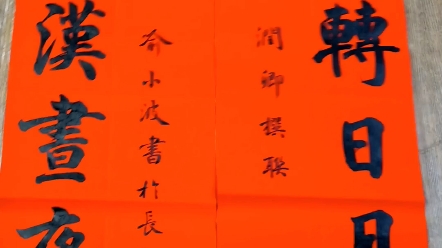 轉日
潤卿撰联
俞小波書於長
漢晝夜